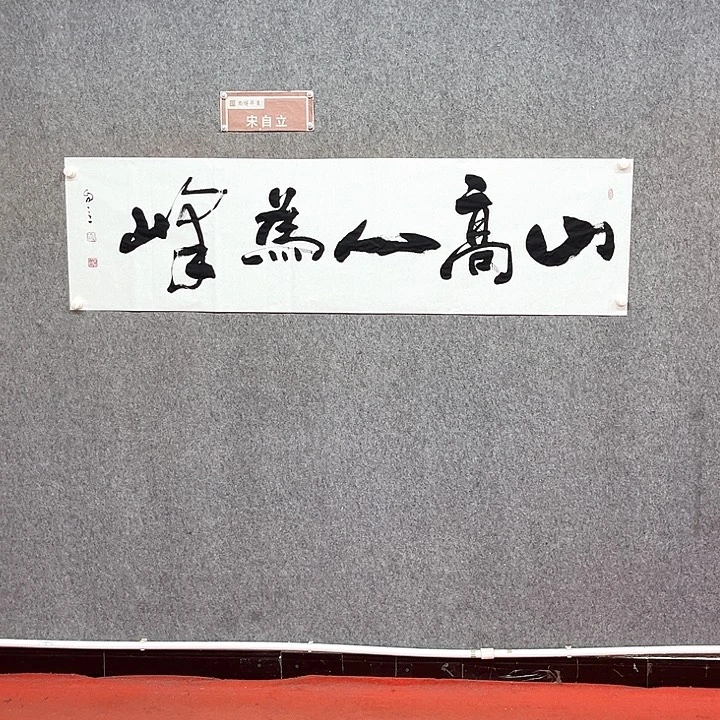 宋自立
山高人為峰
自立